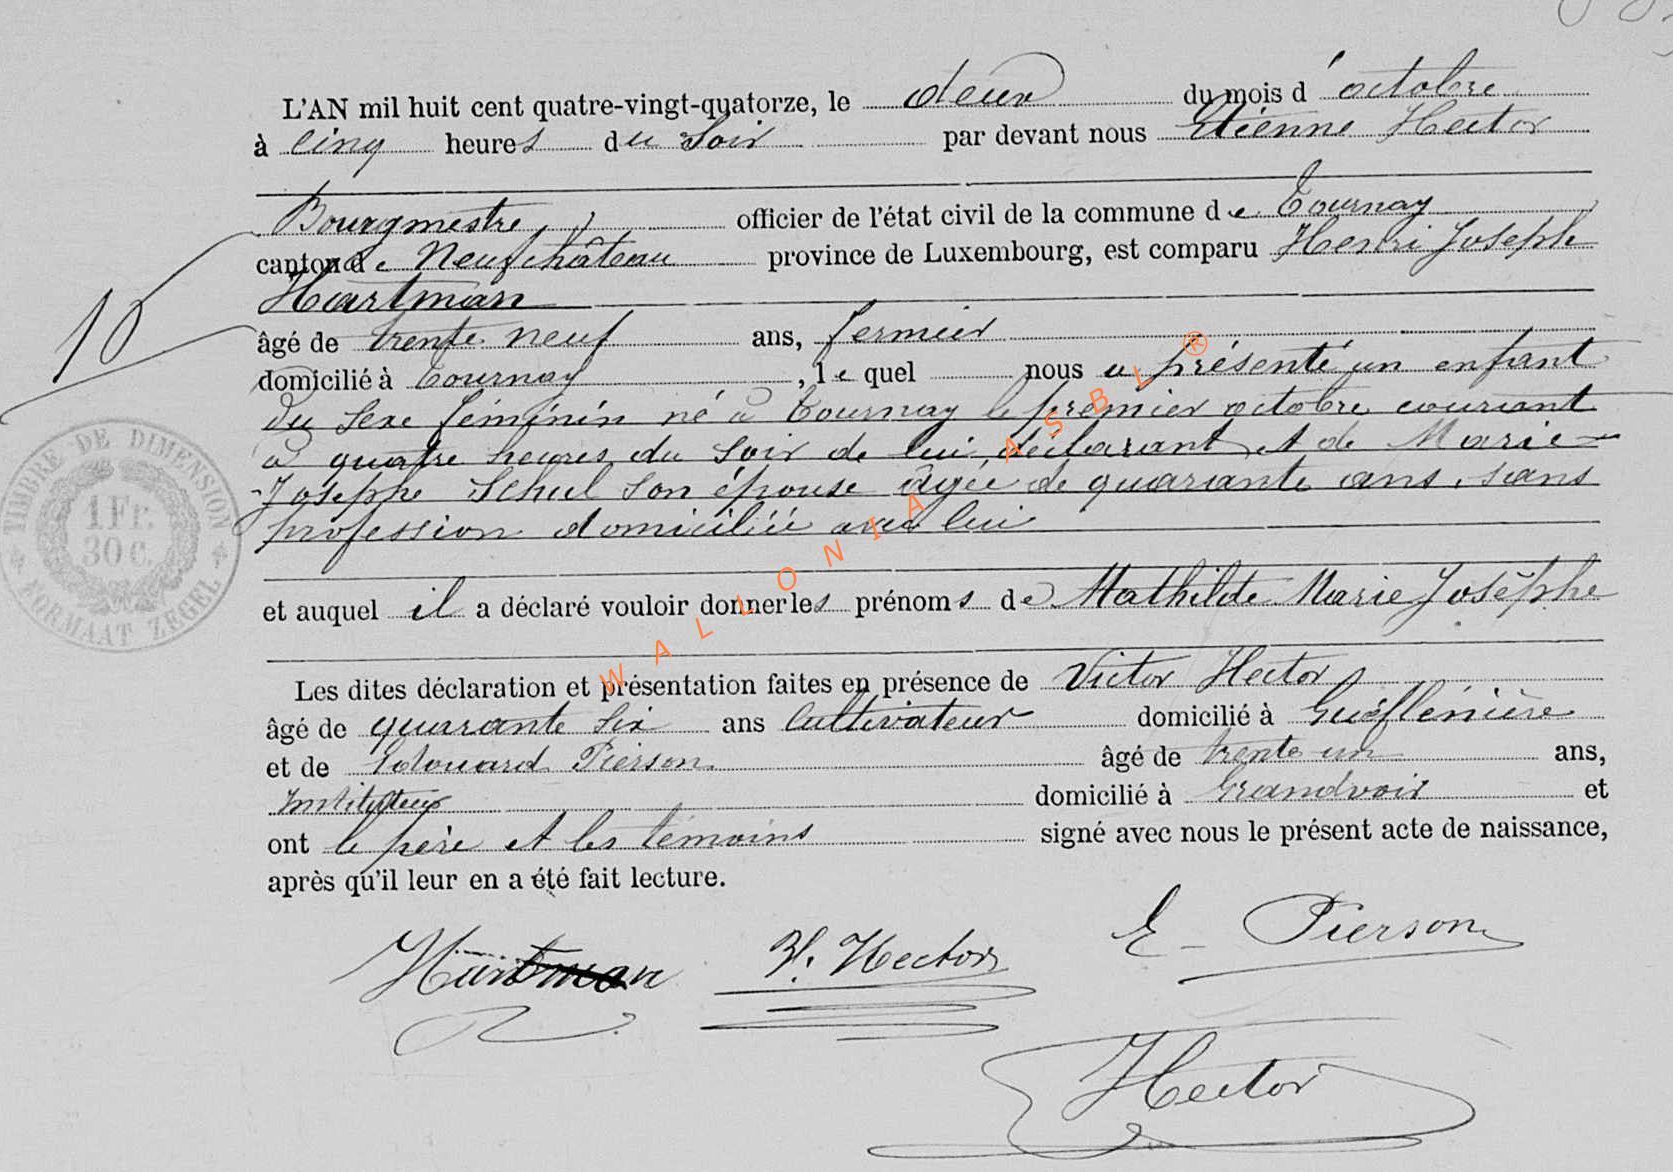 L'AN mil huit cent quatre-vingt-quatorze, le deux du mois d'octobre
à cinq heures du soir par devant nous Etienne Hector
Bourgmestre, officier de l'état civil de la commune de Tournay
canton de Neufchâteau province de Luxembourg, est comparu Henri Joseph
Hartman
10
âgé de trente neuf ans, fermier
domicilié à Tournay, lequel nous a présenté un enfant
du sexe féminin né à Tournay le premier octobre courant
à quatre heures du soir de lui déclarant et de Marie-
Josephe Schul son épouse âgée de quarante ans, sans
profession domiciliée avec lui
TIMBRE DE DIMENSION
1 Fr.
30 c.
FORMAAT ZEGEL
et auquel il a déclaré vouloir donner les prénoms de Mathilde Marie Josèphe
Les dites déclaration et présentation faites en présence de Victor Hector
âgé de quarante six ans cultivateur domicilié à Gueflénière
et de Edouard Pierson âgé de trente un ans,
Instituteur domicilié à Grandvoir et
ont le père et les témoins signé avec nous le présent acte de naissance,
après qu'il leur en a été fait lecture.
Hartman V. Hector E - Pierson
Hector
WALLONIA ASBL®